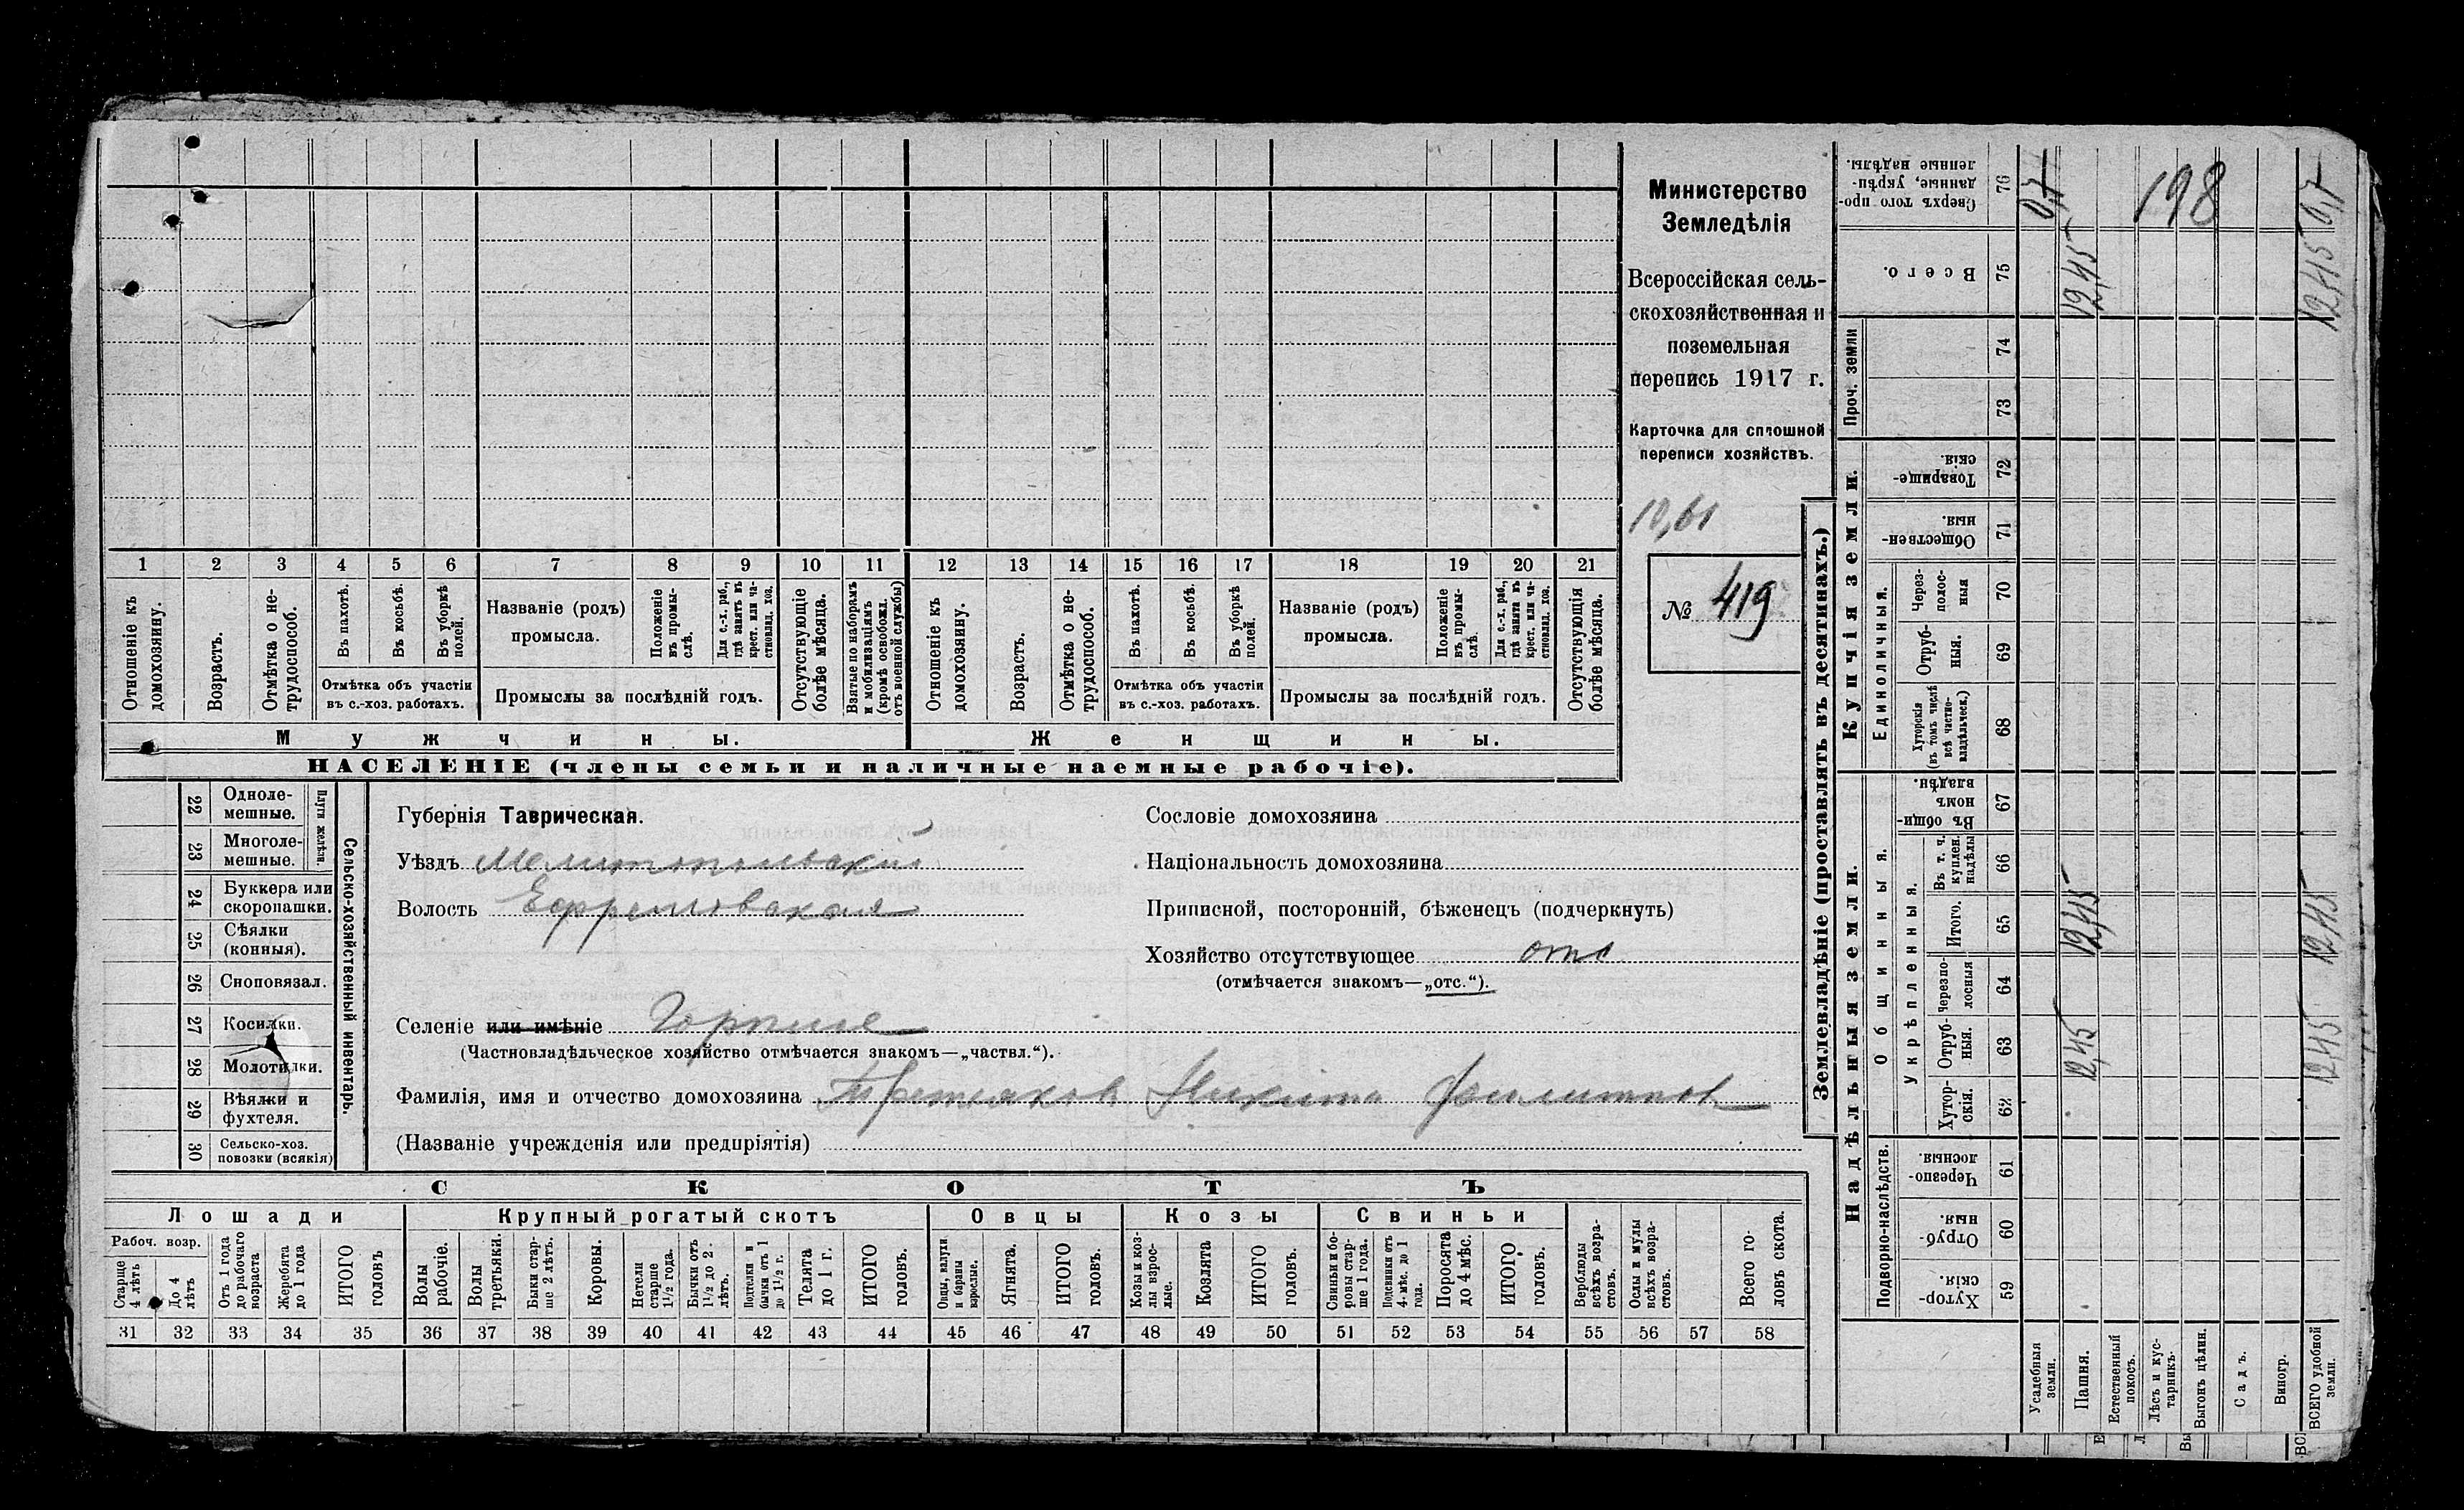 Министерство
Земледѣлія
Всероссійская сель-
скохозяйственная и
поземельная
перепись 1917 г.
Карточка для сплошной
переписи хозяйствъ.
10,61
№ 419
1 2 3 4 5 6 7 8 9 10 11 12 13 14 15 16 17 18 19 20 21
Отношеніе къ домохозяину.
Возрастъ.
Отмѣтка о не-трудоспособ.
Въ пахотѣ.
Въ косьбѣ.
Въ уборкѣ полей.
Отмѣтка объ участіи
въ с.-хоз. работахъ.
Названіе (родъ)
промысла.
Положеніе въ промы-слѣ.
Для с.-х. раб., гдѣ занятъ въ крест. или ча-стновлад. хоз.
Промыслы за послѣдній годъ.
Отсутствующіе болѣе мѣсяца.
Взятые по наборамъ и мобилизаціямъ (кромѣ освобожд. отъ военной службы)
Отношеніе къ домохозяину.
Возрастъ.
Отмѣтка о не-трудоспособ.
Въ пахотѣ.
Въ косьбѣ.
Въ уборкѣ полей.
Отмѣтка объ участіи
въ с.-хоз. работахъ.
Названіе (родъ)
промысла.
Положеніе въ промы-слѣ.
Для с.-х. раб., гдѣ занята въ крест. или ча-стновлад. хоз.
Промыслы за послѣдній годъ.
Отсутствующія болѣе мѣсяца.
Мужчины.
Женщины.
НАСЕЛЕНІЕ (члены семьи и наличные наемные рабочіе).
22 Одноле-мешные.
23 Многоле-мешные.
Плуги желѣзн.
24 Буккера или скоропашки.
25 Сѣялки (конныя).
26 Сноповязал.
27 Косилки.
28 Молотилки.
29 Вѣялки и фухтеля.
30 Сельско-хоз. повозки (всякія)
Сельско-хозяйственный инвентарь.
Губернія Таврическая.
Уѣздъ Мелитопольский
Волость Ефремовская
Селеніе или имѣніе Горькое
(Частновладѣльческое хозяйство отмѣчается знакомъ—„частвл.“).
Фамилія, имя и отчество домохозяина Третьяков Никита Филиппов
(Названіе учрежденія или предпріятія)
Сословіе домохозяина
Національность домохозяина
Приписной, посторонній, бѣженецъ (подчеркнуть)
Хозяйство отсутствующее отс
(отмѣчается знакомъ—„отс.“).
СКОТЪ
Лошади
Крупный рогатый скотъ
Овцы
Козы
Свиньи
Рабоч. возр.
Старше 4 лѣтъ
До 4 лѣтъ
Отъ 1 года до рабочаго возраста
Жеребята до 1 года
ИТОГО головъ
Волы рабочіе.
Волы третьяки.
Быки стар-ше 2 лѣтъ.
Коровы.
Нетели старше 1½ года.
Бычки отъ 1½ до 2 лѣтъ.
Подтелки и бычки отъ 1 до 1½ г.
Телята до 1 г.
ИТОГО головъ.
Овцы, валухи и бараны взрослые.
Ягнята.
ИТОГО головъ.
Козы и коз-лы взрос-лые.
Козлята
ИТОГО головъ.
Свиньи и бо-ровы стар-ше 1 года.
Подсвинки отъ 4 мѣс. до 1 года.
Поросята до 4 мѣс.
ИТОГО головъ.
Верблюды всѣхъ возра-стовъ.
Ослы и мулы всѣхъ возра-стовъ.
Всего го-ловъ скота.
31 32 33 34 35 36 37 38 39 40 41 42 43 44 45 46 47 48 49 50 51 52 53 54 55 56 57 58
Землевладѣніе (проставлять въ десятинахъ.)
Надѣльныя земли.
Купчія земли.
Проч. земли
Подворно-наслѣдств.
Общинныя.
Укрѣпленныя.
Единоличныя.
Сверхъ того про-данные, укрѣп-ленные надѣлы. 76 0,7 198 0,7
Всего. 75 12,45 12,45
74
73
Товарище-скія. 72
Обществен-ныя. 71
Через-полос-ныя 70
Отруб-ныя. 69
Хуторскія (въ томъ числѣ всѣ частно-владѣльческ.) 68
Въ общи-номъ владѣн. 67
Въ т. ч. куплен. надѣлы 66
Итого. 65 12,45 12,45
Черезпо-лосныя 64
Отруб-ныя. 63 12,45 12,45
Хутор-скія. 62
Черезпо-лосныя. 61
Отруб-ныя. 60
Хутор-скія. 59
Усадебныя земли.
Пашня.
Естественный покосъ.
Лѣсъ и кус-тарникъ.
Выгонъ цѣлин.
Садъ.
Виногр.
ВСЕГО удобной земли.